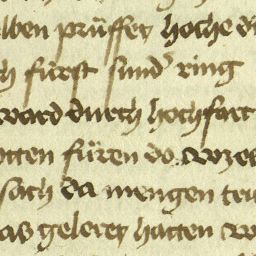 lben prüffet hoche di
h fürst sund' ring
ward durch hochfart
tten füren do wze
sach da mengen teu
as geleret hatten w